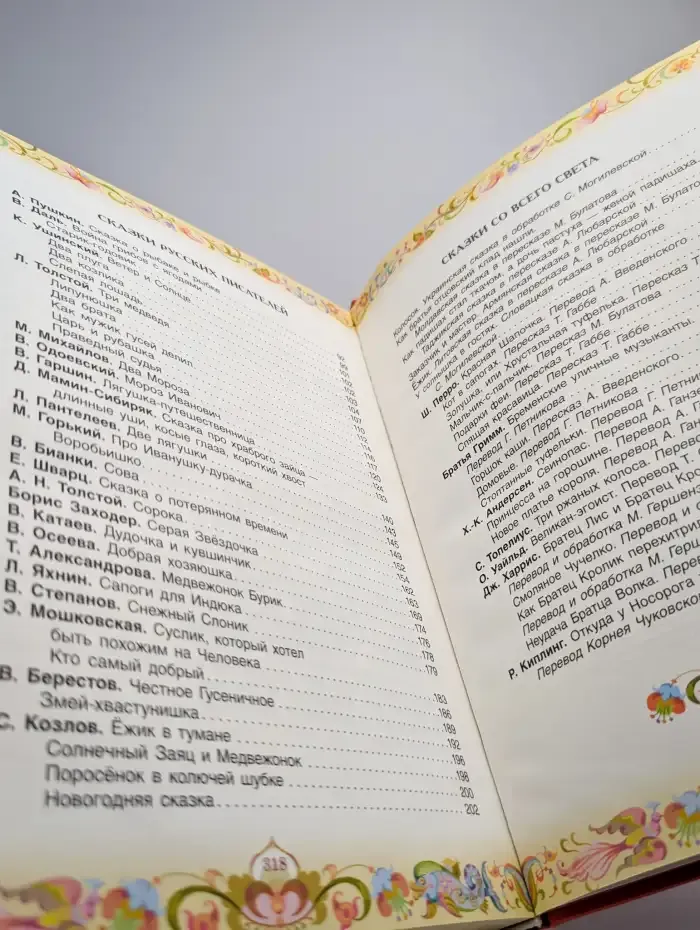 СКАЗКИ РУССКИХ ПИСАТЕЛЕЙ
А. Пушкин. Сказка о рыбаке и рыбке
В. Даль. Война грибов с ягодами
Старик-годовик
К. Ушинский. Ветер и Солнце
Два плуга
Два козлика
Слепая лошадь
Л. Толстой. Три медведя
Липунюшка
Два брата
Как мужик гусей делил
Царь и рубашка
Праведный судья
М. Михайлов. Два Мороза
В. Одоевский. Мороз Иванович
В. Гаршин. Лягушка-путешественница
Д. Мамин-Сибиряк. Сказка про храброго зайца —
длинные уши, косые глаза, короткий хвост
Л. Пантелеев. Две лягушки
М. Горький. Про Иванушку-дурачка
Воробьишко
В. Бианки. Сова 140
Е. Шварц. Сказка о потерянном времени 143
А. Н. Толстой. Сорока 145
Борис Заходер. Серая Звёздочка 149
В. Катаев. Дудочка и кувшинчик 152
В. Осеева. Добрая хозяюшка 154
Т. Александрова. Медвежонок Бурик 162
Л. Яхнин. Сапоги для Индюка 163
В. Степанов. Снежный Слоник 169
Э. Мошковская. Суслик, который хотел 174
быть похожим на Человека 176
Кто самый добрый 178
В. Берестов. Честное Гусеничное 179
Змей-хвастунишка 183
С. Козлов. Ёжик в тумане 186
Солнечный Заяц и Медвежонок 196
Поросёнок в колючей шубке 198
Новогодняя сказка 202
318
СКАЗКИ СО ВСЕГО СВЕТА
Колосок. Украинская сказка в обработке С. Могилевской
Как братья отцовский клад нашли.
Молдавская сказка в пересказе М. Булатова
Как пастух стал ткачом, а дочь пастуха — женой падишаха.
Таджикская сказка в пересказе А. Любарской
Заказчик и мастер. Армянская сказка в пересказе М. Булатова
Ёжик. Литовская сказка в пересказе А. Любарской
У солнышка в гостях. Словацкая сказка в обработке
С. Могилевской
Ш. Перро. Красная Шапочка. Перевод А. Введенского
Кот в сапогах. Пересказ Т. Габбе
Золушка, или Хрустальная туфелька. Пересказ Т.
Мальчик-с-пальчик. Пересказ М. Булатова
Подарки феи. Пересказ Т. Габбе
Спящая красавица. Пересказ Т. Габбе
Братья Гримм. Бременские уличные музыканты.
Перевод Г. Петникова
Горшок каши. Пересказ А. Введенского
Домовые. Перевод Г. Петникова
Стоптанные туфельки. Перевод Г. Петни
Х.-К. Андерсен. Свинопас. Перевод А. Ганзе
Принцесса на горошине. Перевод А. Г
Новое платье короля. Перевод А. Ган
С. Топелиус. Три ржаных колоса. Перево
О. Уайльд. Великан-эгоист. Перевод Т.
Дж. Харрис. Братец Лис и Братец Крол
Перевод и обработка М. Гершен
Смоляное Чучелко. Перевод и
Как Братец Кролик перехитри
Перевод и обработка М. Герш
Неудача Братца Волка. Перев
Р. Киплинг. Откуда у Носорога
Перевод Корнея Чуковско